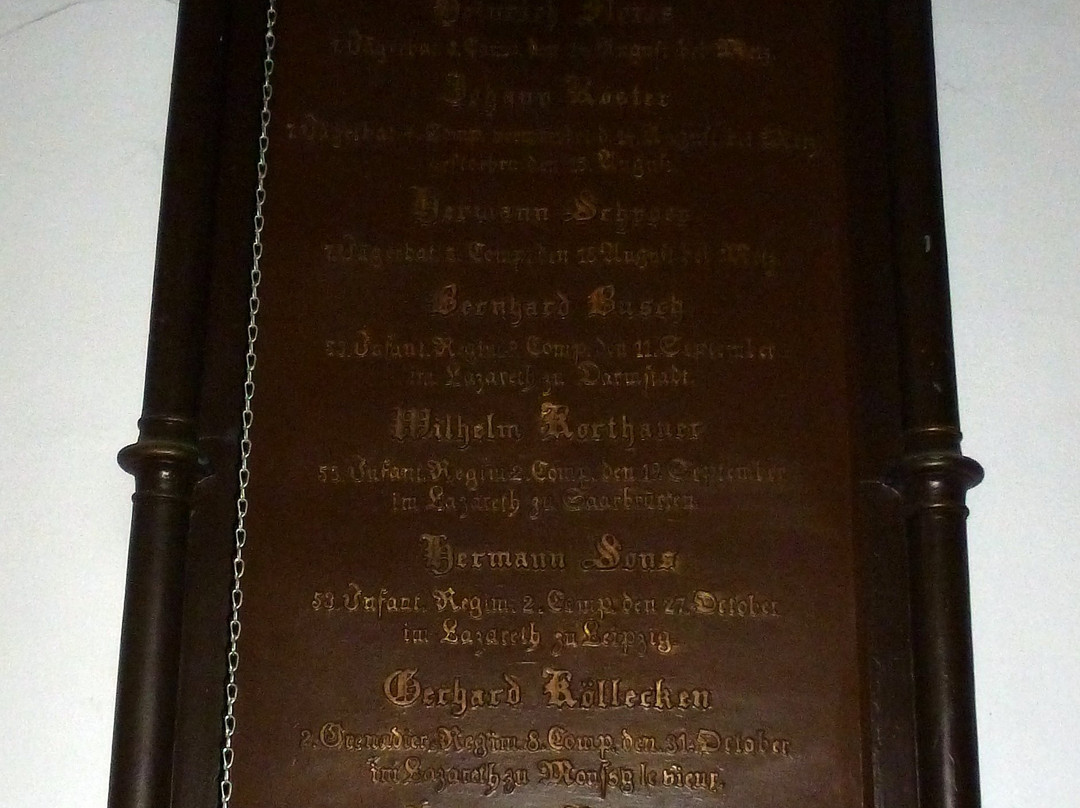 Heinrich
7. Jägerbat. Comp. den August bei Metz.
Johann Köster
7. Jägerbat. 4. Comp. verwundet d. August bei Metz
gestorben den 15. August.
Hermann
7. Jägerbat. Comp. den 18 August bei Metz.
Bernhard Busch
53. Infant. Regim. Comp. den 11. September
im Lazareth zu Darmstadt.
Wilhelm Korthauer
53. Infant. Regim. 2. Comp. den 12. September
im Lazareth zu Saarbrücken.
Hermann Sons
53. Infant. Regim. 2. Comp. den 27. October
im Lazareth zu Leipzig.
Gerhard Köllecken
2. Grenadier-Regim. 8. Comp. den 31. October
im Lazareth zu le vieux.